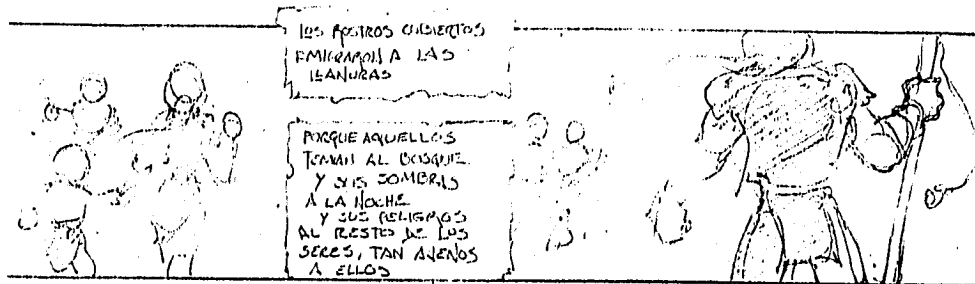 LOS ROSTROS CUBIERTOS
EMIGRARON A LAS
LLANURAS
PORQUE AQUELLOS
TEMIAN AL BOSQUE
Y SUS SOMBRAS
A LA NOCHE
Y SUS PELIGROS
AL RESTO DE LOS
SERES, TAN AJENOS
A ELLOS